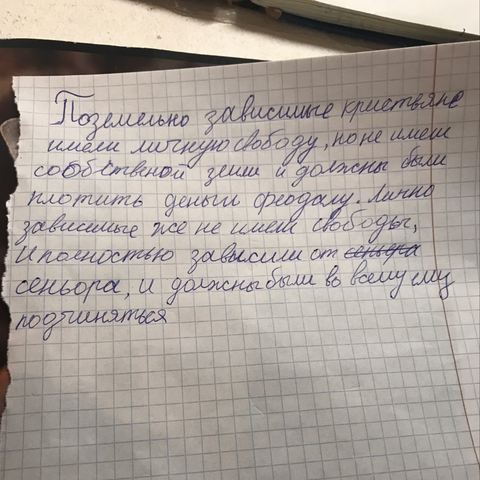 Поземельно зависимые кристьяне
имели личную свободу, но не имели
собственой земли и должны были
плотить деньги феодалу. Лично
зависимые же не имели свободы,
И полностью зависили от сеньора
сеньора, и должны были во всему ему
подчиняться